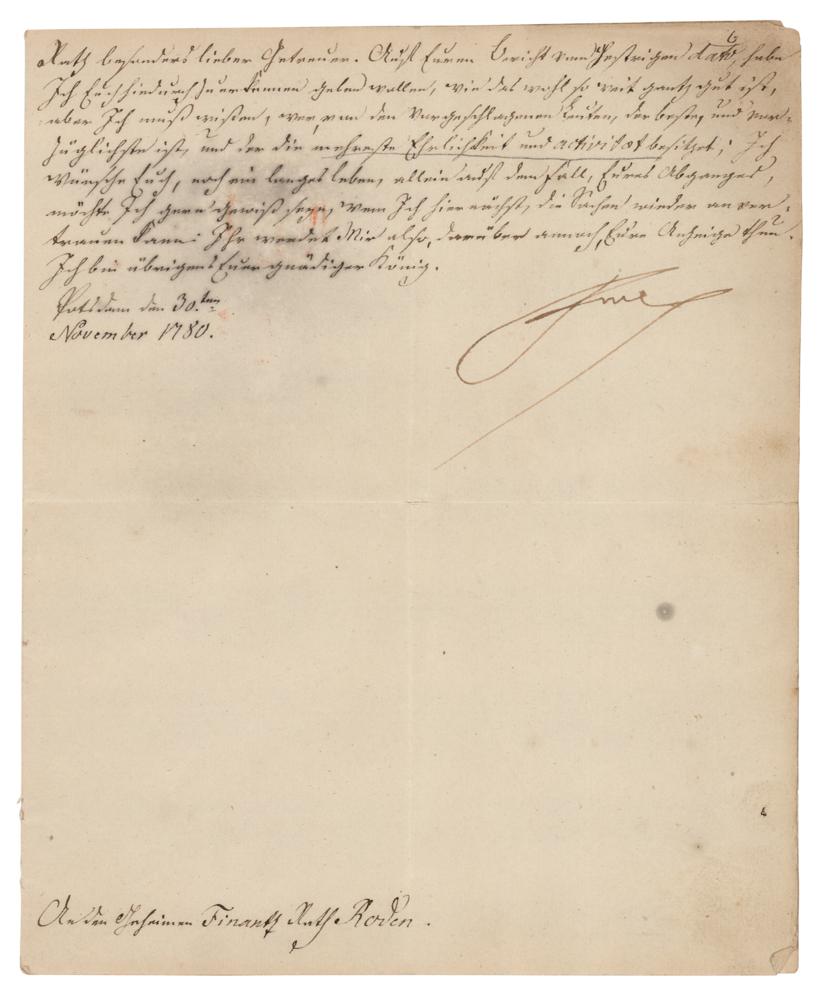 6
Rath besonders lieber Getreuer. Auf Euren Bericht vom gestrigen dato, habe
Ich Euch hiedurch zu erkennen geben wollen, wie das wohl so weit gantz gut ist,
aber Ich muß wißen, wer von den vorgeschlagenen Leuten, der beste, und vor-
züglichste ist, und der die mehreste Ehrlichkeit und activitæt besitzet; Ich
wünsche Euch, noch ein langes Leben, allein auf dem Fall, Eures Abganges,
möchte Ich gern gewiß seyn, wem Ich hiernächst, die Sachen wieder anver-
trauen kann: Ihr werdet Mir also, darüber annoch, Eure Anzeige thun.
Ich bin übrigens Euer gnädiger König.
Potsdam den 30.ten
November 1780.
An den Geheimen Finantz Rath Roden.